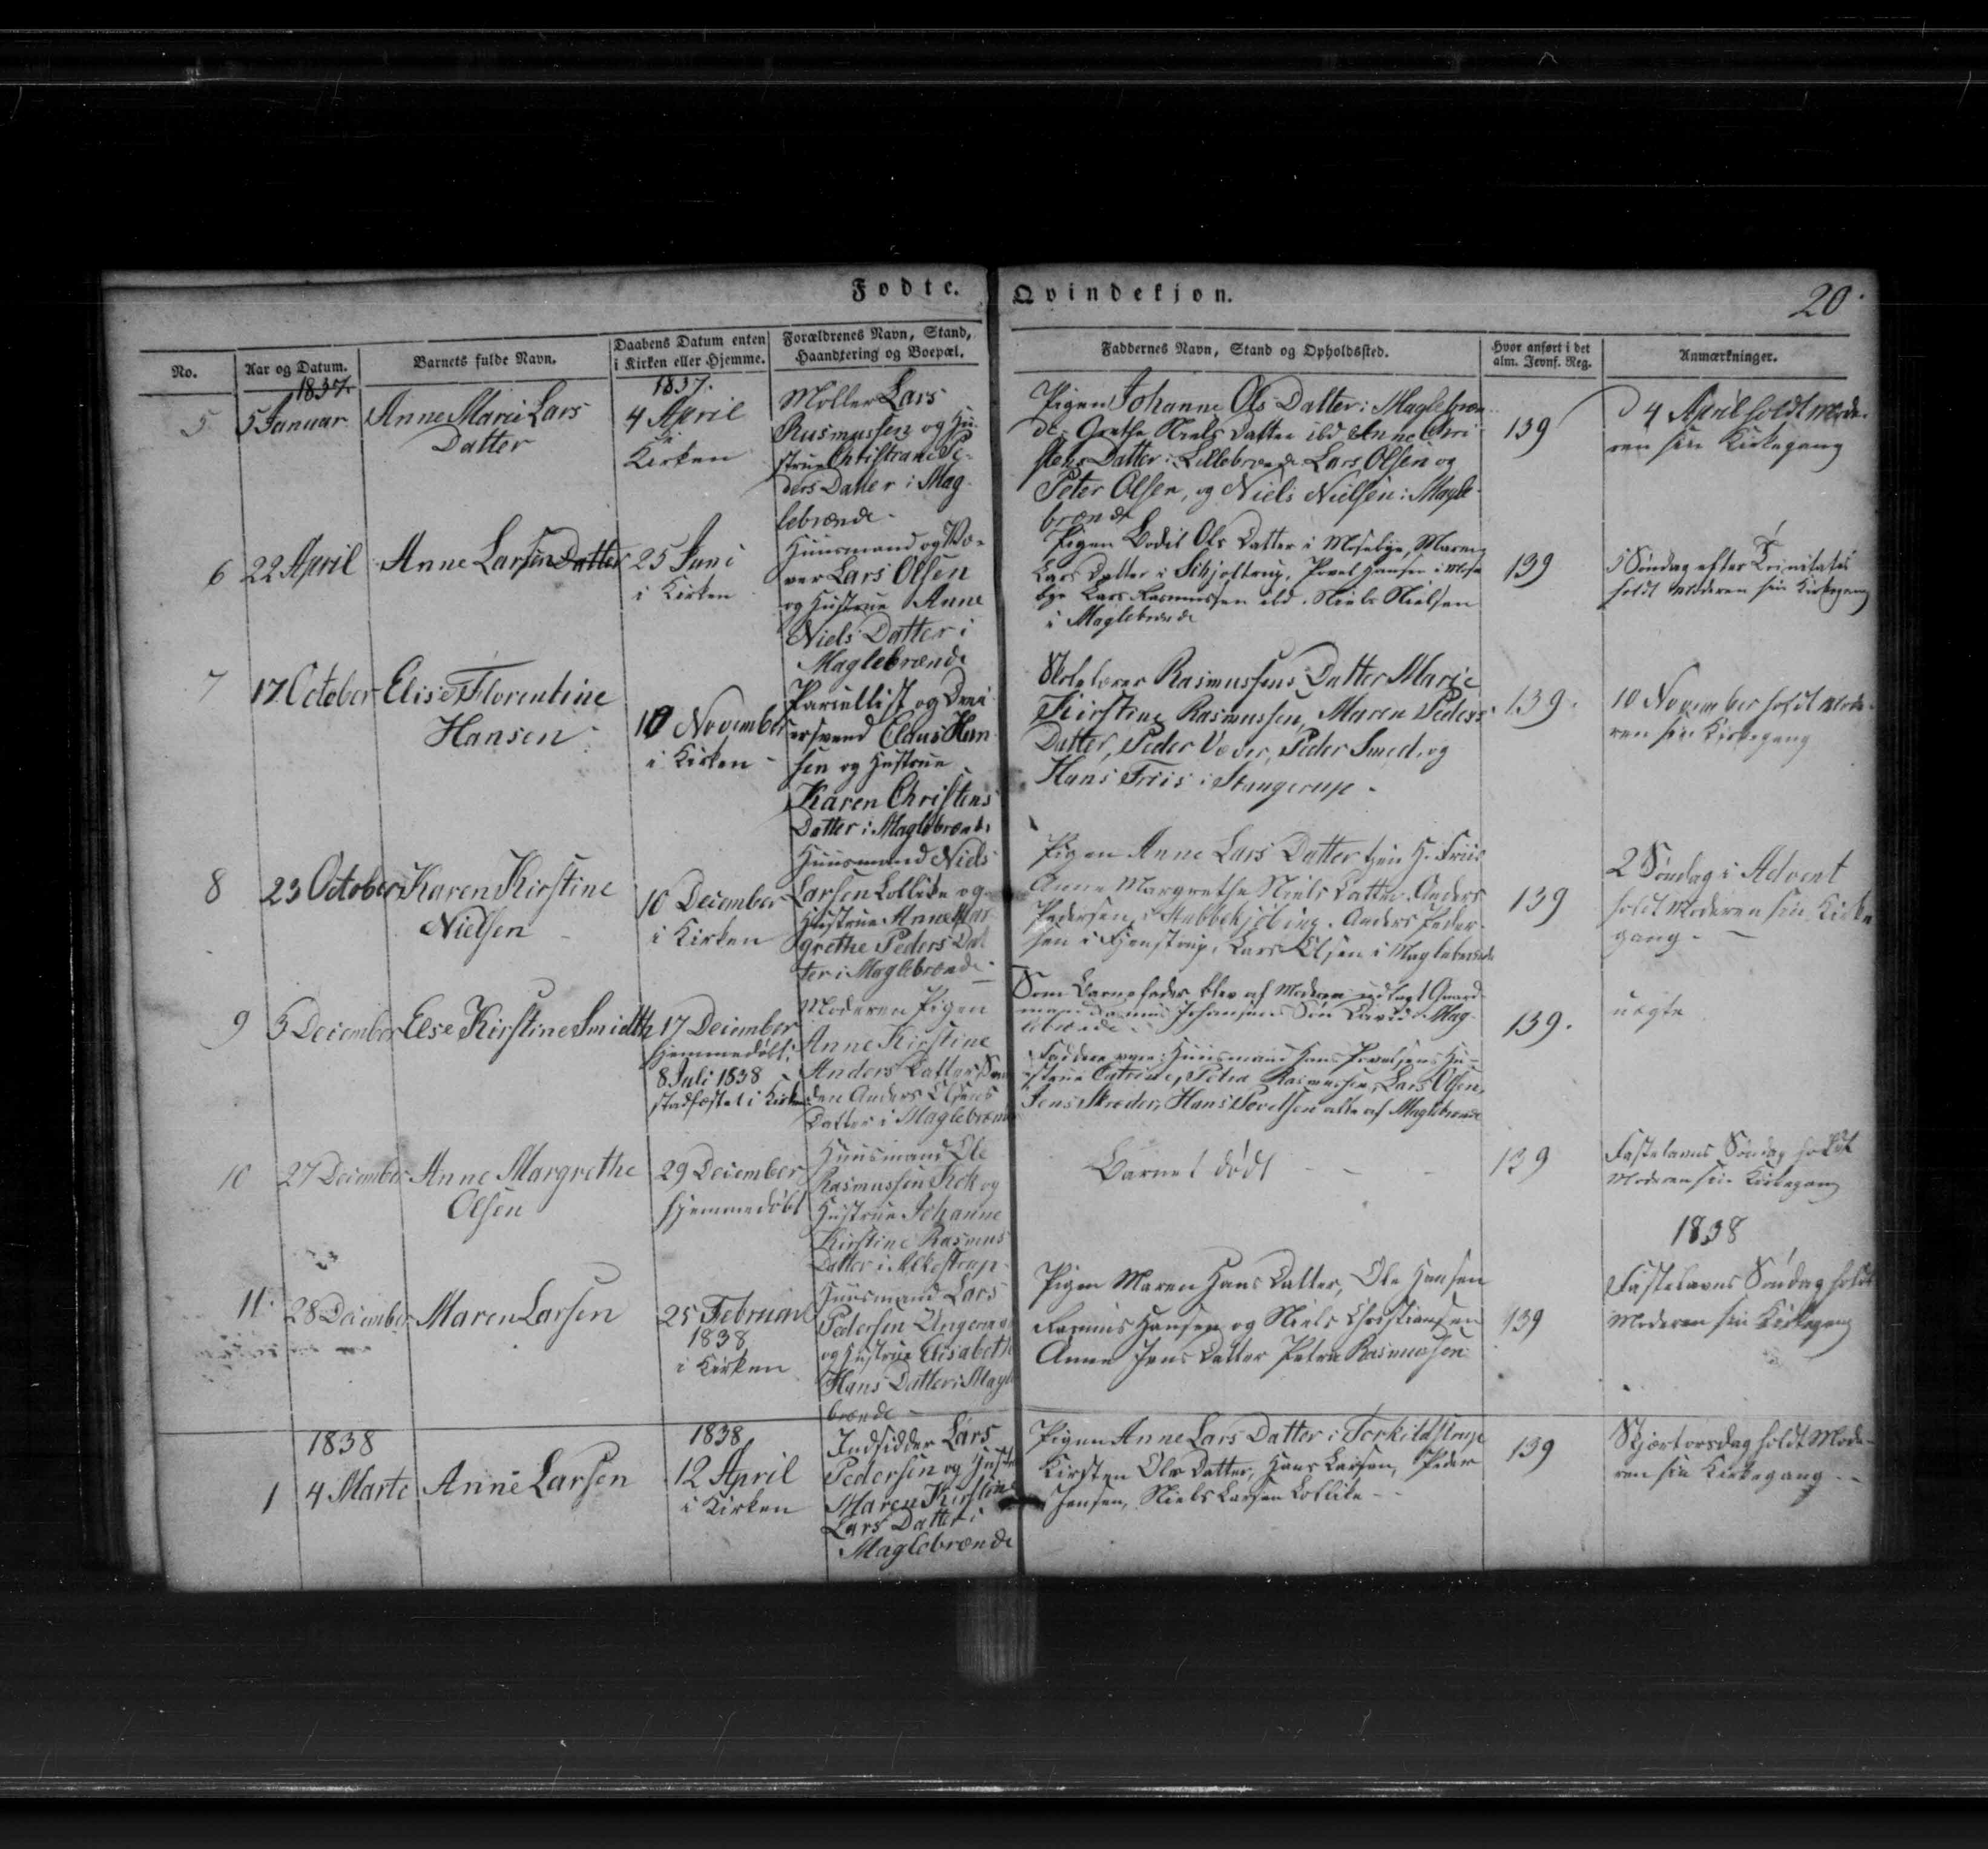 Fødte. Qvindekjøn.
20
No.
Aar og Datum.
Barnets fulde Navn.
Daabens Datum enten
i Kirken eller Hjemme.
Forældrenes Navn, Stand,
Haandtering og Boepæl.
Faddernes Navn, Stand og Opholdssted.
Hvor anført i det
alm. Jevnf. Reg.
Anmærkninger.
1837.
5
5 Januar
Anne Marie Lars
Datter
1837.
4 April
i
Kirken
Møller Lars
Rasmussen og Hu-
strue Christiane Pe-
ders Datter i Mag-
lebrænde
Pigen Johanne Ols Datter i Maglebræn-
de, Grethe Niels Datter ibd Anne Chri-
stens Datter i Lillebrænde Lars Olsen og
Peter Olsen, og Niels Nielsen i Magle-
brænde
139
4 April holdt Mode-
ren sin Kirkegang
6
22 April
Anne Larsen Datter
25 Juni
i Kirken
Huusmand og Væ-
ver Lars Olsen
og Hustrue Anne
Niels Datter i
Maglebrænde
Pigen Bodil Ols Datter i Mosebye, Maren
Lars Datter i Schjoltrup, Povel Hansen i Mose
bye Lars Rasmussen ibd. Niels Nielsen
i Maglebrænde
139
5 Søndag efter Trinitatis
holdt Moderen sin Kirkegang
7
17 October
Elise Florentine
Hansen
10 November
i Kirken
Parcellist og Drei-
ersvend Claus Han
sen og Hustrue
Karen Christens
Datter i Maglebrænde
Skolelærer Rasmussens Datter Marie
Kirstine Rasmussen, Maren Peders
Datter, Peder Væver, Peder Smed, og
Hans Friis i Stangerup
139.
10 November holdt Mode-
ren sin Kirkegang
8
23 October
Karen Kirstine
Nielsen
10 December
i Kirken
Huusmand Niels
Larsen Lollike og
Hustrue Anne Mar-
grethe Peders Dat
ter i Maglebrænde
Pigen Anne Lars Datter hjos H. Friis
Anne Margrethe Niels Datter Anders
Pedersen i Stubbekjöbing. Anders Peder-
sen i , Lars Olsen i Maglebrænde
139
2 Søndag i Advent
holdt Moderen sin Kirke
gang
9
5 December
Else Kirstine Smidth
17 December
hjemmedøbt,
8 Juli 1838
stadfæstet i Kirken
Moderen Pigen
Anne Kirstine
Anders Datter,
Anders Olsens
Datter i Maglebrænde
Som Barnefader blev af Moderen udlagt Gaard-
mand Johansens Søn David i Mag-
lebrænde
Faddere vare: Huusmand Hans Povelsens Hu-
strue Catrine, Petra Rasmussen, Lars Olsen,
Jens Skræder, Hans Povelsen alle af Maglebrænde
139.
uægte
10
27 December
Anne Margrethe
Olsen
29 December
hjemmedøbt
Huusmand Ole
Rasmussen Kok og
Hustrue Johanne
Kirstine Rasmus
Datter i Alkestrup
Barnet dödt
139
Fastelavns Søndag holdt
Moderen sin Kirkegang
1838
11.
28 December
Maren Larsen
25 Februar
1838
i Kirken
Huusmand Lars
Pedersen
og Hustrue Elisabeth
Hans Datter i Magle
brænde
Pigen Maren Hans Datter, Ole Hansen
Rasmus Hansen og Niels Christiansen
Anne Jens Datter Petra Rasmussen
139
Fastelavns Søndag holdt
Moderen sin Kirkegang
1838
1
4 Marts
Anne Larsen
1838
12 April
i Kirken
Indsidder Lars
Pedersen og Hustr
Maren Kirstine
Lars Datter i
Maglebrænde
Pigen Anne Lars Datter i Torkildstrup
Kirsten Ols Datter, Hans Larsen, Peder
Jensen, Niels Larsen Lollike
139
Skjærtorsdag holdt Mode-
ren sin Kirkegang